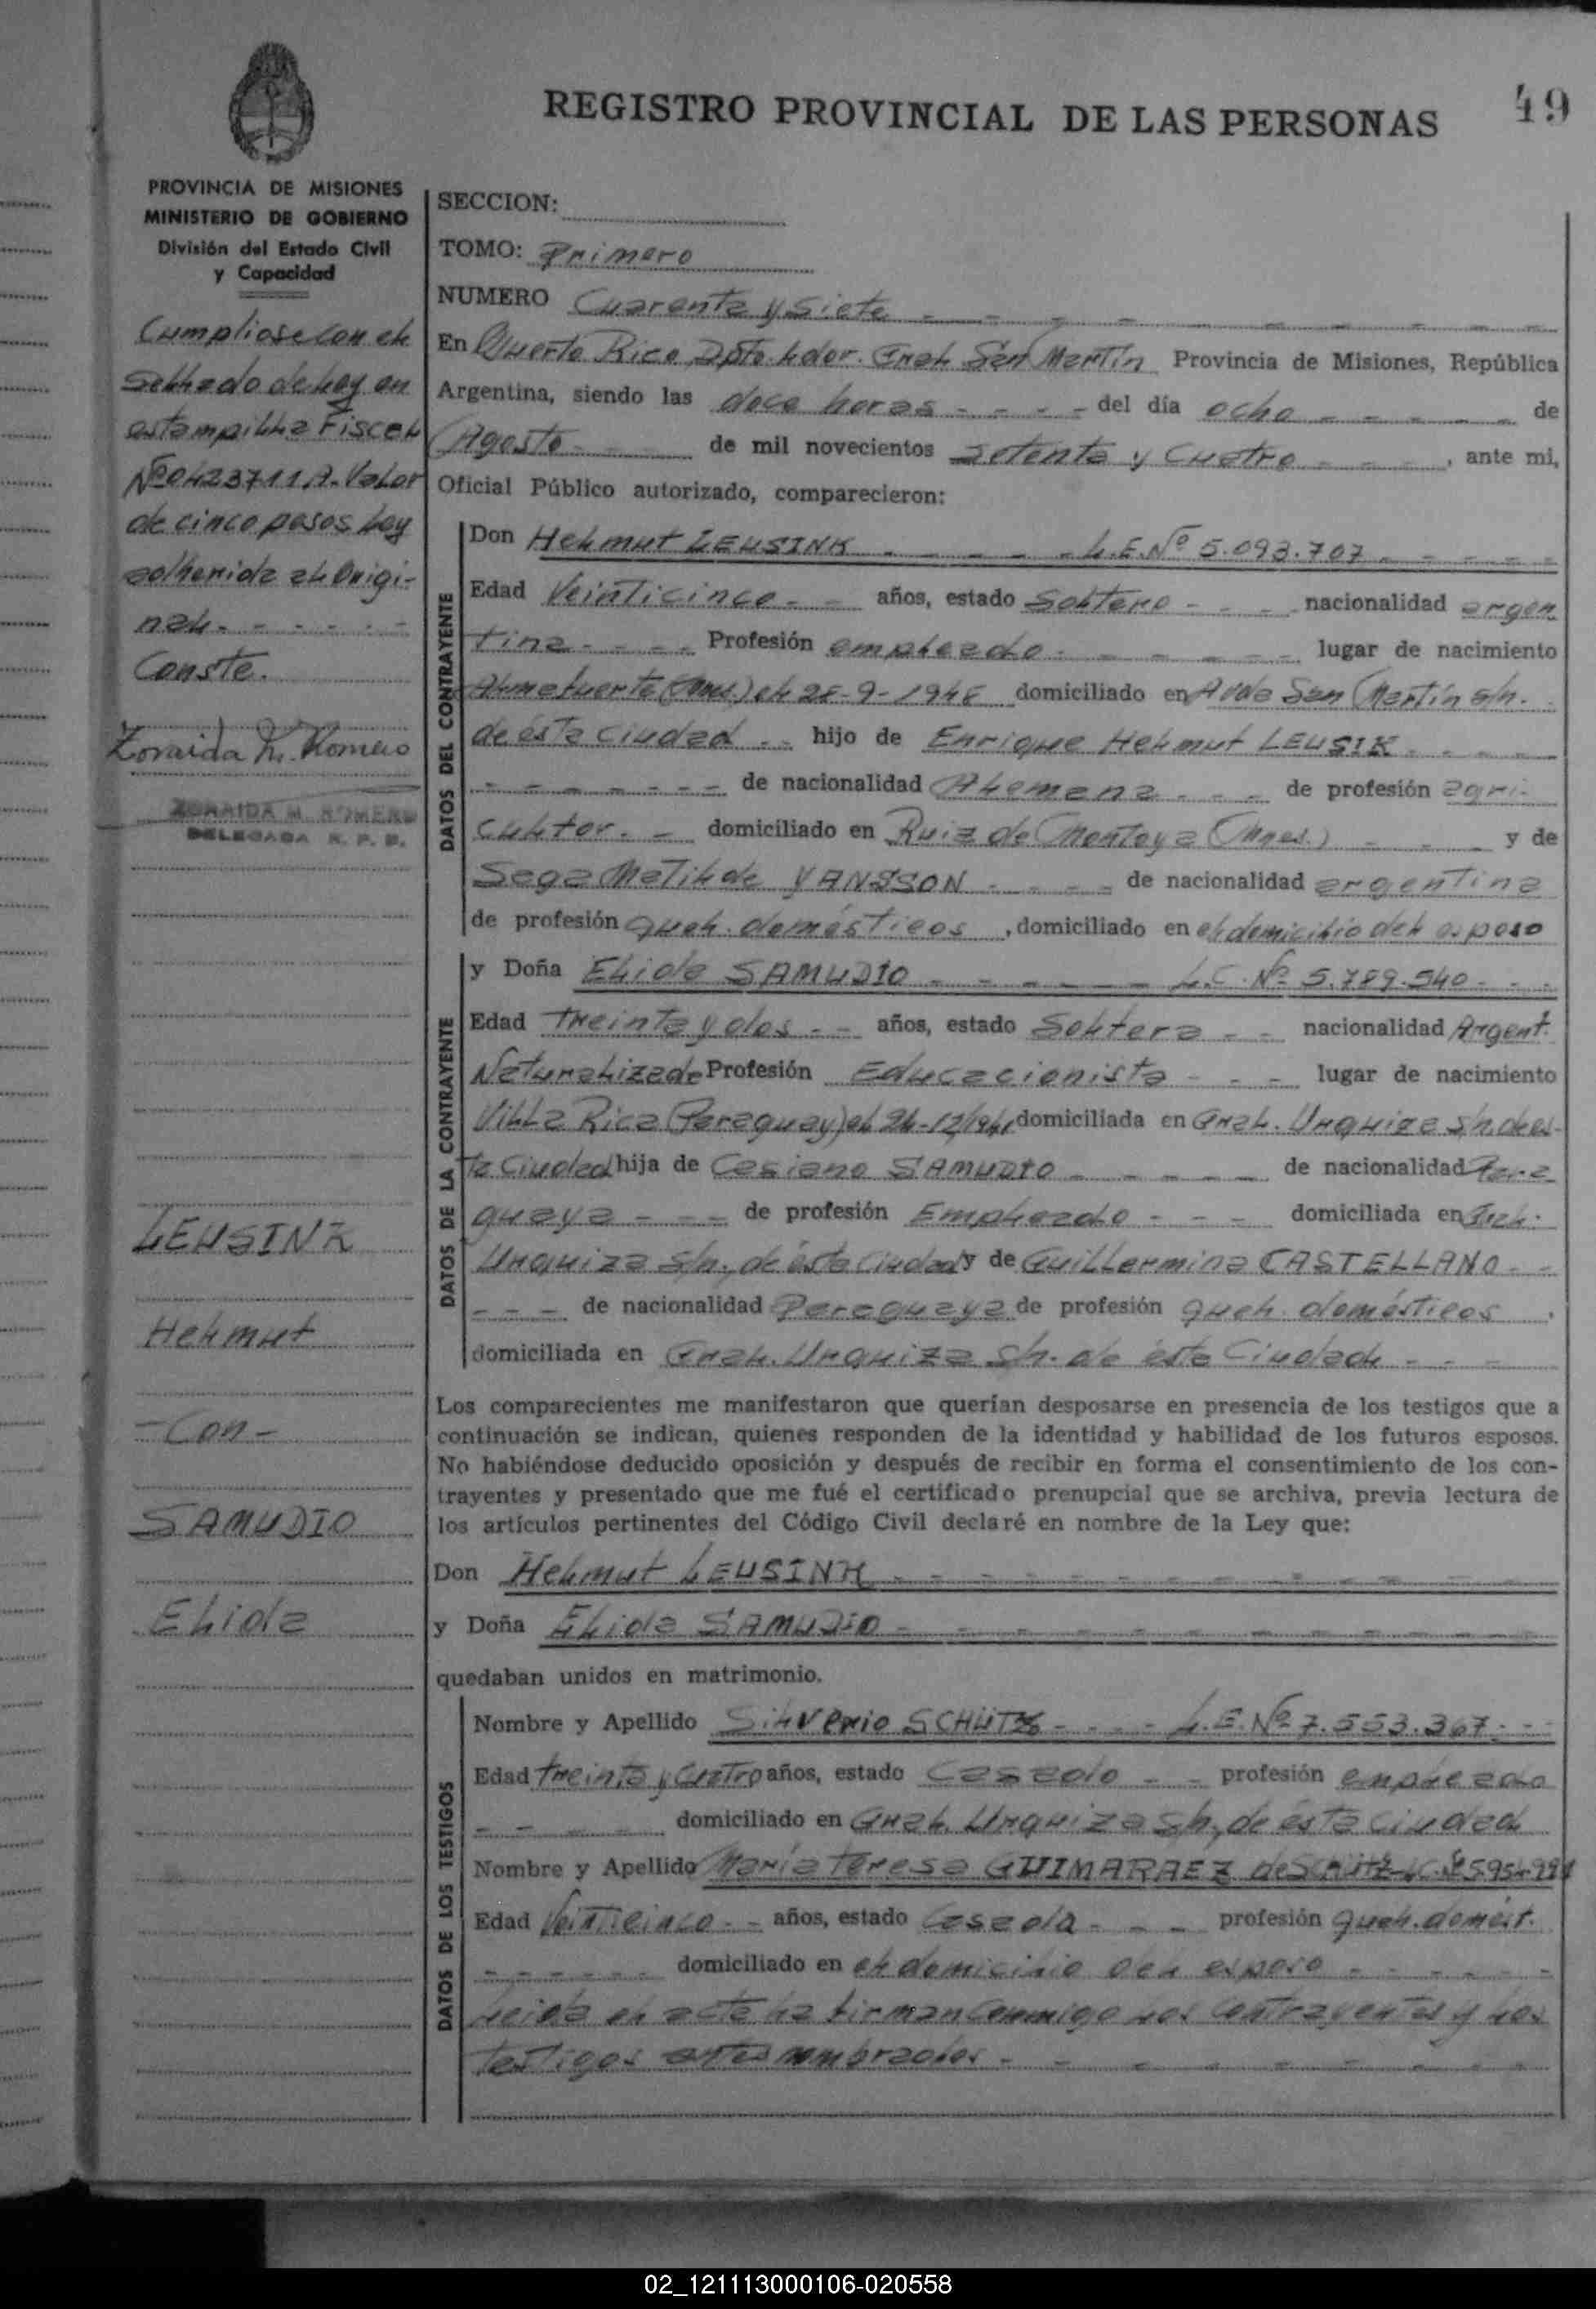 49
REGISTRO PROVINCIAL DE LAS PERSONAS
PROVINCIA DE MISIONES
MINISTERIO DE GOBIERNO
División del Estado Civil
y Capacidad
Cumpliose con el
sellado de hoy en
estampilla Fiscal
Nº 0423711 A. Valor
de cinco pesos hoy
adherida al Origi-
nal
Conste.
Zoraida M. Romero
ZORAIDA M. ROMERO
DELEGADA R. P. P.
LEUSINK
Helmut
- Con -
SAMUDIO
Elida
SECCION:
TOMO: Primero
NUMERO Cuarenta y Siete
En Puerto Rico Dpto. Ldor. Gral. San Martín Provincia de Misiones, República
Argentina, siendo las doce horas del día ocho de
Agosto de mil novecientos setenta y Cuatro, ante mi,
Oficial Público autorizado, comparecieron:
DATOS DEL CONTRAYENTE
Don Helmut LEUSINK L.E. Nº 5.093.707
Edad Veinticinco años, estado Soltero nacionalidad argen
tina Profesión empleado lugar de nacimiento
el 28-9-1948 domiciliado en Avda San Martín s/n.
de ésta Ciudad hijo de Enrique Helmut LEUSIK
de nacionalidad Alemana de profesión agri-
cultor. domiciliado en Ruiz de Montoya (Mnes.) y de
Sega Matilde YANSSON de nacionalidad argentina
de profesión queh. domésticos, domiciliado en el domicilio del esposo
DATOS DE LA CONTRAYENTE
y Doña Elida SAMUDIO L.C. Nº 5.789.540
Edad treinta y dos años, estado Soltera nacionalidad Argent.
Naturalizada Profesión Educacionista lugar de nacimiento
Villa Rica (Paraguay) el 24-12/1941 domiciliada en Gral. Urquiza s/n. de es-
ta Ciudad hija de Casiano SAMUDIO de nacionalidad Para
guaya de profesión Empleado domiciliada en Gral.
Urquiza s/n. de ésta Ciudad y de Guillermina CASTELLANO
de nacionalidad Paraguaya de profesión queh. domésticos,
domiciliada en Gral. Urquiza s/n. de ésta Ciudad
Los comparecientes me manifestaron que querían desposarse en presencia de los testigos que a
continuación se indican, quienes responden de la identidad y habilidad de los futuros esposos.
No habiéndose deducido oposición y después de recibir en forma el consentimiento de los con-
trayentes y presentado que me fué el certificado prenupcial que se archiva, previa lectura de
los artículos pertinentes del Código Civil declaré en nombre de la Ley que:
Don Helmut LEUSINK
y Doña Elida SAMUDIO
quedaban unidos en matrimonio.
DATOS DE LOS TESTIGOS
Nombre y Apellido Silverio SCHUTZ L.E. Nº 7.553.367
Edad treinta y Cuatro años, estado Casado profesión empleado
domiciliado en Gral. Urquiza s/n. de ésta Ciudad
Nombre y Apellido María Teresa GUIMARAEZ de SCHUTZ L.C. Nº
Edad Veinticinco años, estado Casada profesión queh. domést.
domiciliado en el domicilio del esposo
Leida el acta la firman Conmigo los Contrayentes y los
testigos antes nombrados.
02_121113000106-020558